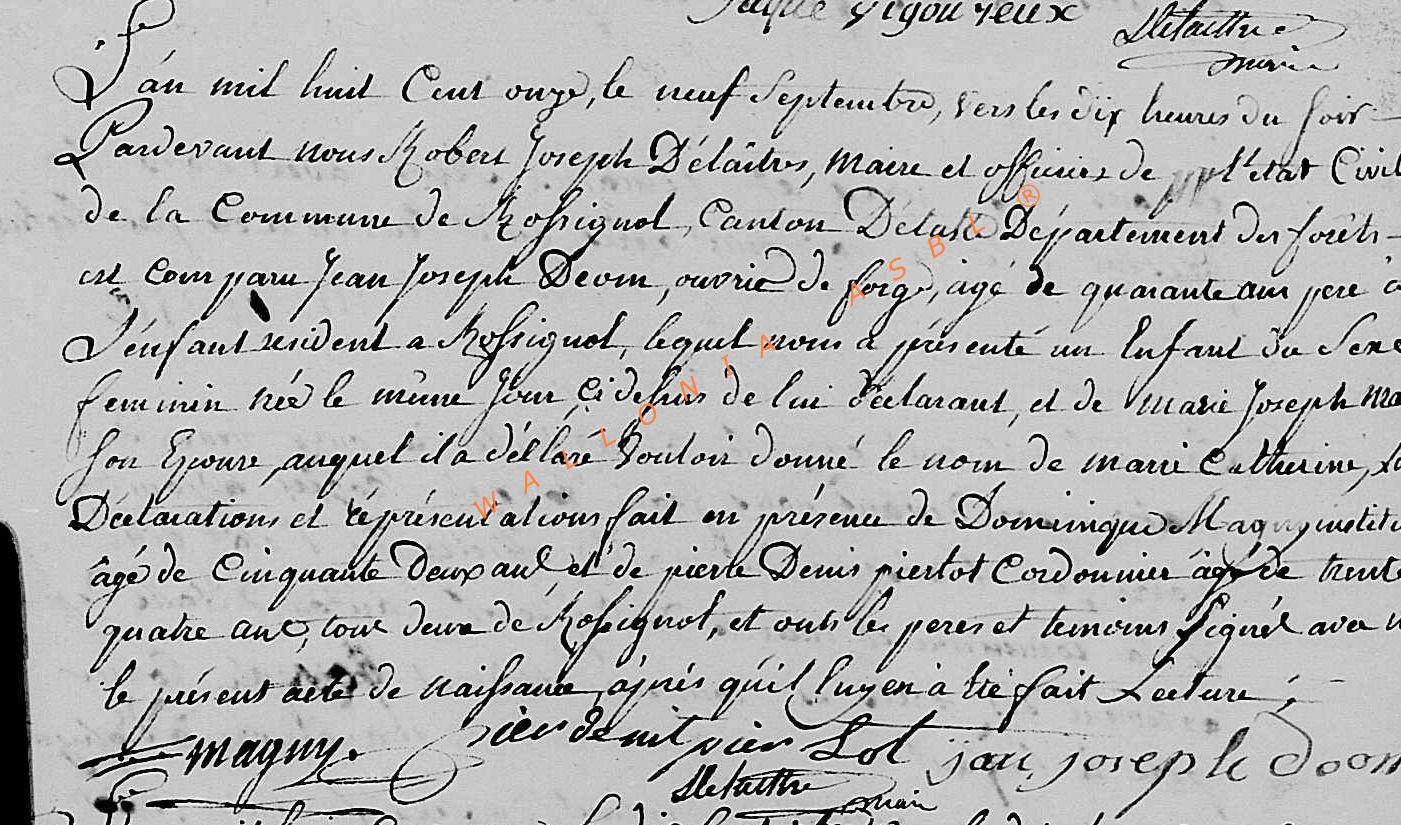 jaque Vigoureux
Delaittre
maire
L'án mil huit Cent onze, le neuf Septembre, vers les dix heures du soir
Pardevant nous Robert Joseph Délaîtres, Maire et officier de l'état Civil
de la Commune de Rossignol, Canton Détalle Département des forêts
est comparu Jean Joseph Deom, ouvrié de forge, agé de quarante ans pere
L'énfant résident a Rossignol, lequel nous a présenté un Enfant du Sexe
feminin née le même Jour ci dessus de lui déclarant, et de Marie Joseph
son Epouse, auquel il a déclaré Vouloir donné le nom de Marie Catherine,
Déclarations et représentations fait en présence de Dominique Magny
âgé de Cinquante Deux ans et de pierre Denis pierlot Cordonnier âgé de trente
quatre ans, tous deux dé Rossignol, et onts les peres et temoins signés avec
le présent acte de naissance, áprés qu'il luy en à été fait Lecture;
magny. pier denit pier Lot jan joseph doom
Delaittre
mair
WALLONIA ASBL ®